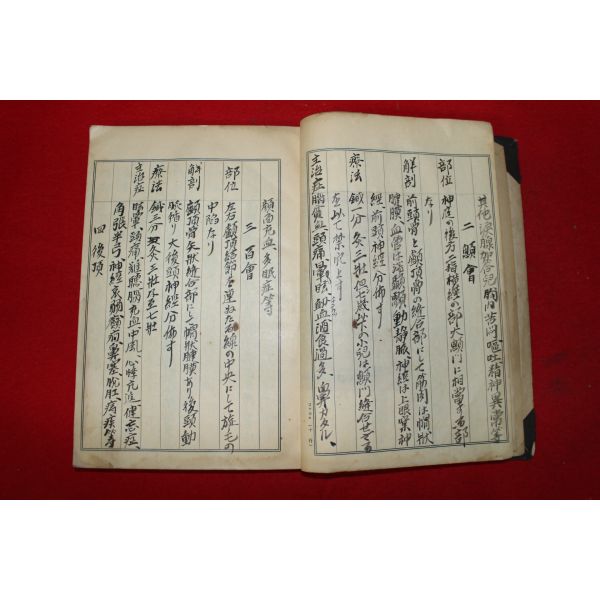 其他涙腺加答兒胸内苦悶嘔吐精神異常等
二 顖會
部位 神庭の後方二指横經の部大顖門に相當する部
なり
解剖 前頭骨と顱頂骨の縫合部にして筋肉は帽狀
腱膜、血管は淺顳顬動靜脈、神經は上眼窠神
經前頭神經分佈す
療法 鍼三分灸三壯但七歲以下の小兒は顖門縫合せざる
を以て禁鍼とす
主治症 腦貧血頭痛眩暈衄血過食過多鼻カタル、
顏面充血多眠症等
三 百會
部位 左右顱頂結節を連ねたる線の中央にして旋毛の
中陷なり
解剖 顱頂骨矢狀縫合部にして帽狀腱膜あり後頭動
脈循り大後頭神經分佈す
療法 鍼二分灸三壯乃至七壯
主治症 眩暈頭痛難聽腦充血中風、心悸亢進、健忘症、
角張半弓神經衰弱癲癇鼻塞脫肛、痔疾等
四 後頂